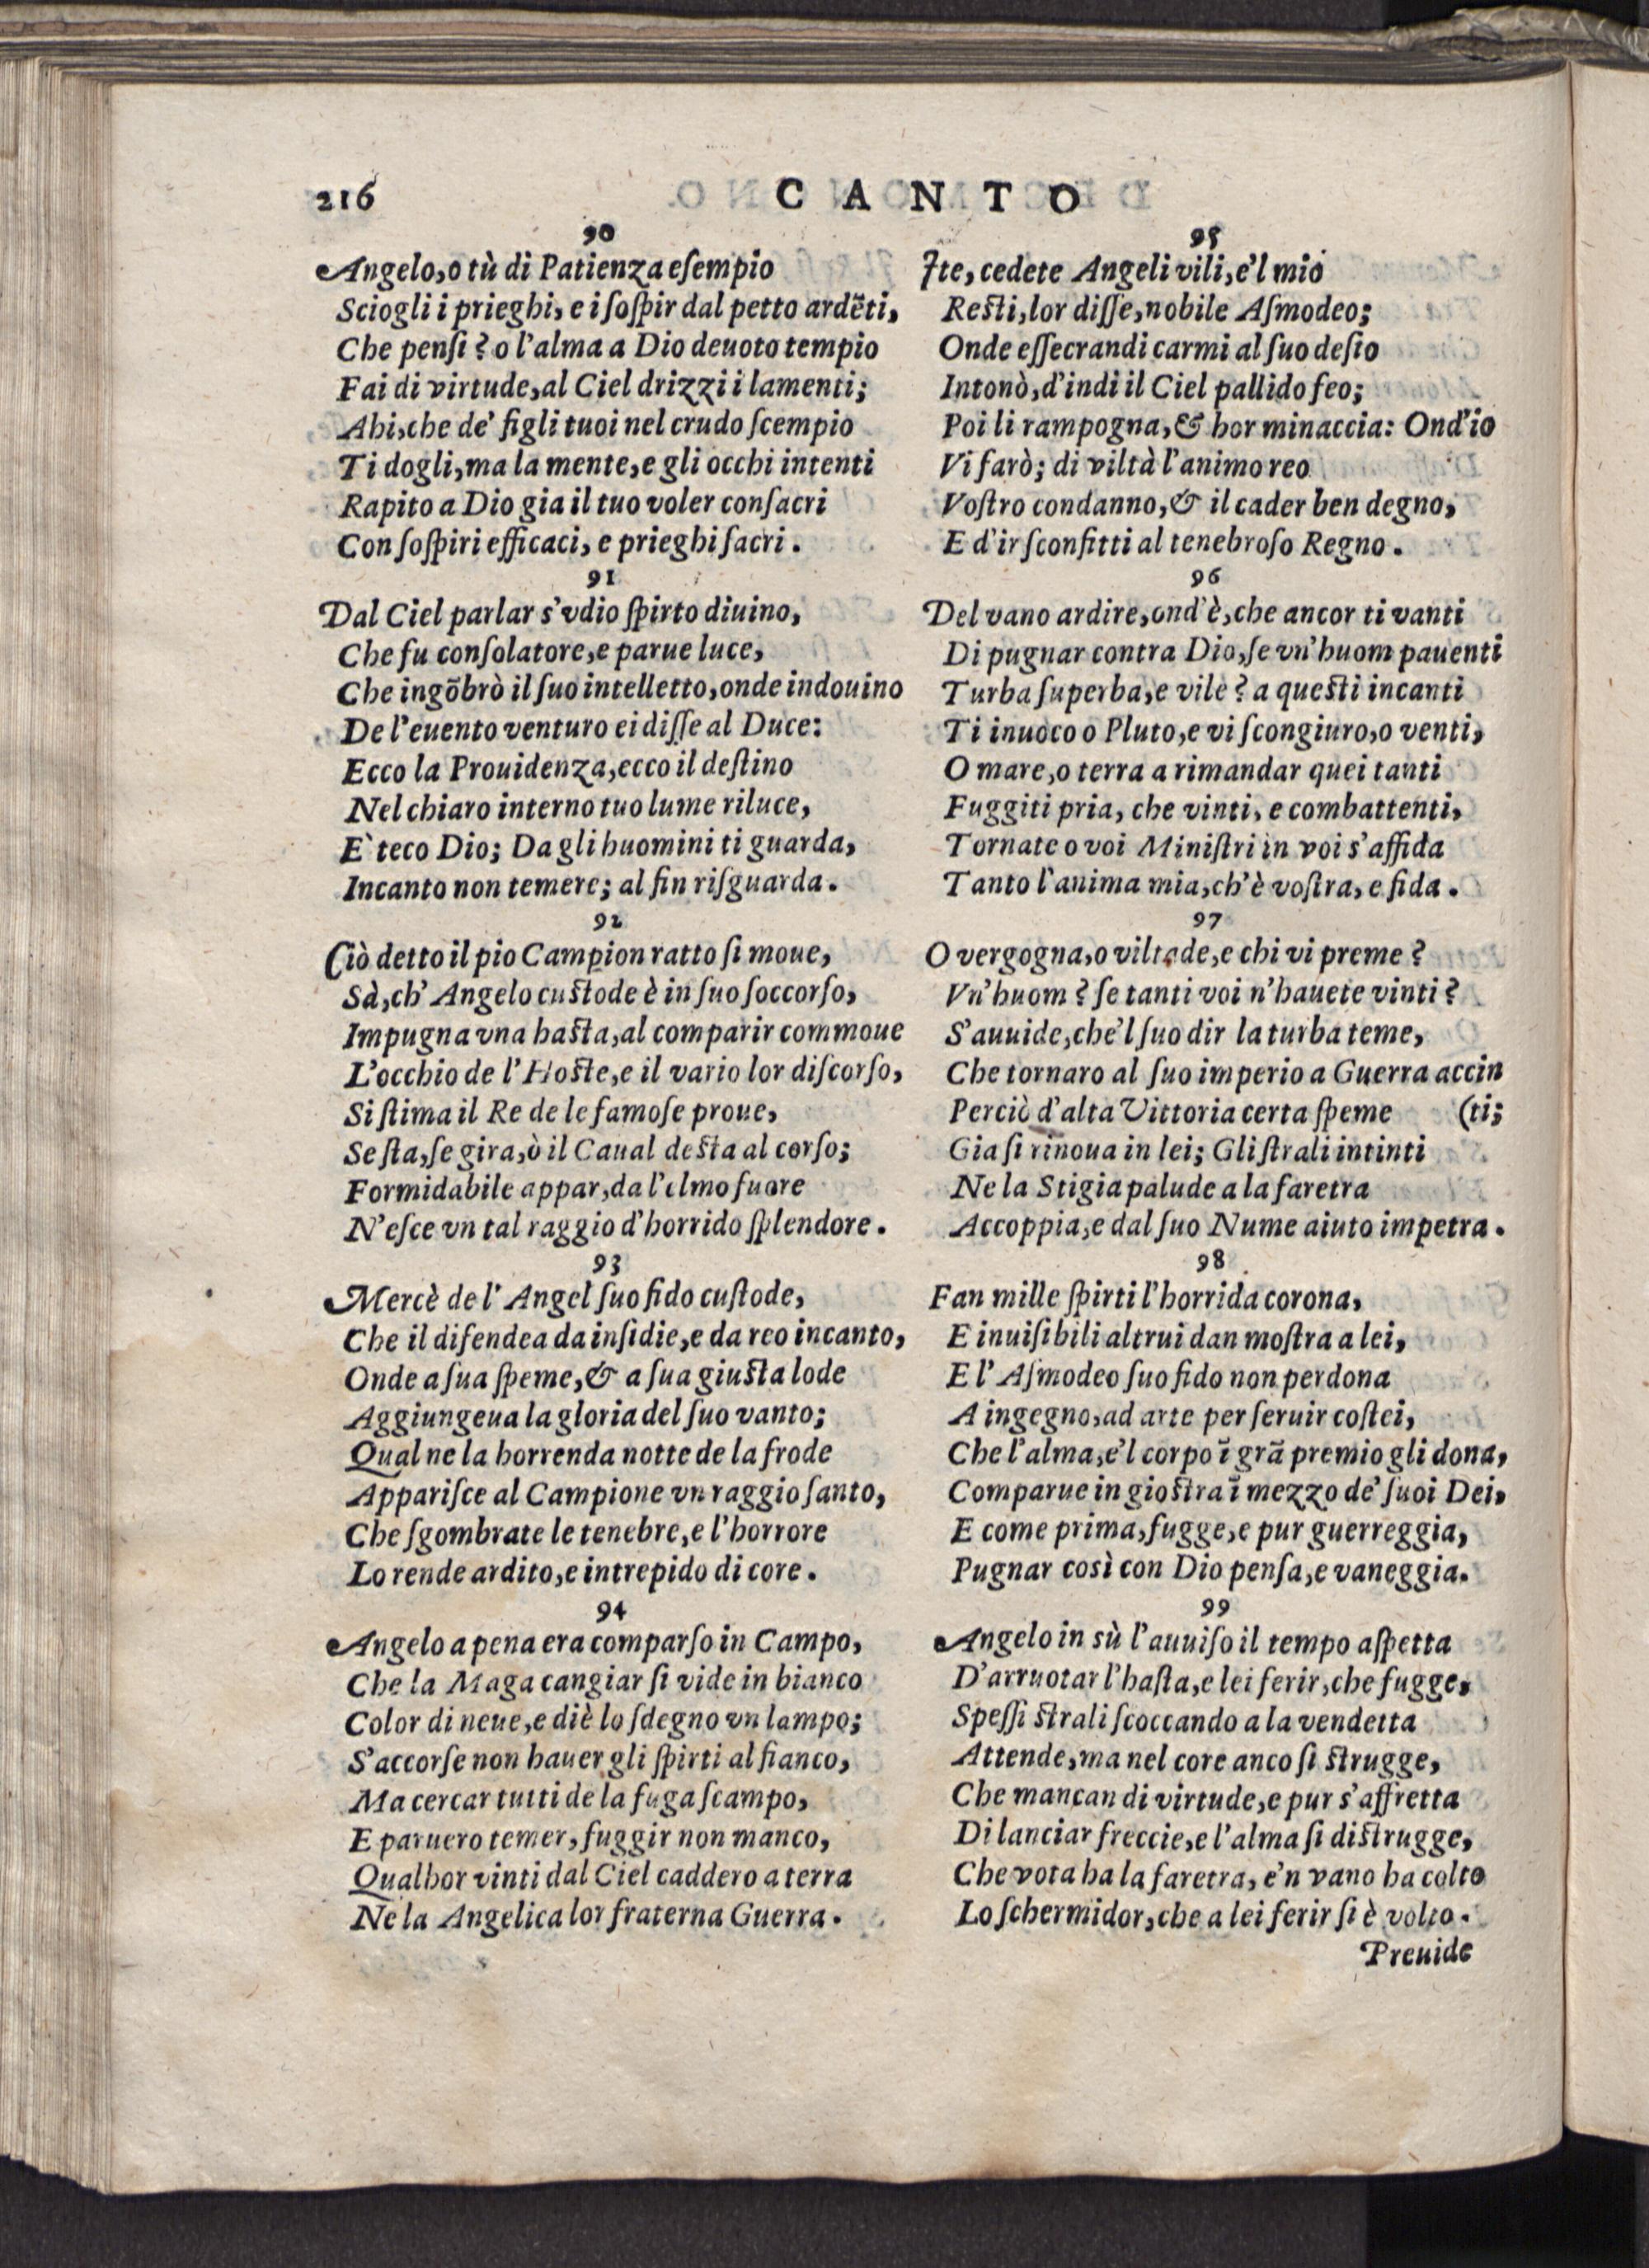 216
CANTO
90
Angelo, o tù di Patienza eſempio
Sciogli i prieghi, e i ſoſpir dal petto ardẽti,
Che penſi? o l'alma a Dio deuoto tempio
Fai di virtude, al Ciel drizzi i lamenti;
Ahi, che de' figli tuoi nel crudo ſcempio
Ti dogli, ma la mente, e gli occhi intenti
Rapito a Dio gia il tuo voler conſacri
Con ſoſpiri efficaci, e prieghi ſacri.
91
Dal Ciel parlar s'vdio ſpirto diuino,
Che fu conſolatore, e parue luce,
Che ingõbrò il ſuo intelletto, onde indouino
De l'euento venturo ei diſſe al Duce:
Ecco la Prouidenza, ecco il deſtino
Nel chiaro interno tuo lume riluce,
E` teco Dio; Da gli huomini ti guarda,
Incanto non temere; al fin riſguarda.
92
Ciò detto il pio Campion ratto ſi moue,
Sà, ch' Angelo cuſtode è in ſuo ſoccorſo,
Impugna vna haſta, al comparir commoue
L'occhio de l'Hoſte, e il vario lor diſcorſo,
Si ſtima il Re de le famoſe proue,
Se ſta, ſe gira, ò il Caual deſta al corſo;
Formidabile appar, da l'elmo fuore
N'eſce vn tal raggio d'horrido ſplendore.
93
Mercè de l' Angel ſuo fido cuſtode,
Che il difendea da inſidie, e da reo incanto,
Onde a ſua ſpeme, & a ſua giuſta lode
Aggiungeua la gloria del ſuo vanto;
Qual ne la horrenda notte de la frode
Appariſce al Campione vn raggio ſanto,
Che ſgombrate le tenebre, e l'horrore
Lo rende ardito, e intrepido di core.
94
Angelo a pena era comparſo in Campo,
Che la Maga cangiar ſi vide in bianco
Color di neue, e diè lo ſdegno vn lampo;
S'accorſe non hauer gli ſpirti al fianco,
Ma cercar tutti de la fuga ſcampo,
E paruero temer, fuggir non manco,
Qualhor vinti dal Ciel caddero a terra
Ne la Angelica lor fraterna Guerra.
95
Ite, cedete Angeli vili, e'l mio
Reſti, lor diſſe, nobile Aſmodeo;
Onde eſſecrandi carmi al ſuo deſio
Intonò, d'indi il Ciel pallido feo;
Poi li rampogna, & hor minaccia: Ond'io
Vi farò; di viltà l'animo reo
Voſtro condanno, & il cader ben degno,
E d'ir ſconfitti al tenebroſo Regno.
96
Del vano ardire, ond'è, che ancor ti vanti
Di pugnar contra Dio, ſe vn'huom pauenti
Turba ſuperba, e vile? a queſti incanti
Ti inuoco o Pluto, e vi ſcongiuro, o venti,
O mare, o terra a rimandar quei tanti
Fuggiti pria, che vinti, e combattenti,
Tornate o voi Miniſtri in voi s'affida
Tanto l'anima mia, ch'è voſtra, e fida.
97
O vergogna, o viltade, e chi vi preme?
Vn'huom? ſe tanti voi n'hauete vinti?
S'auuide, che'l ſuo dir la turba teme,
Che tornaro al ſuo imperio a Guerra accin
Perciò d'alta Vittoria certa ſpeme (ti;
Gia ſi rinoua in lei; Gli ſtrali intinti
Ne la Stigia palude a la faretra
Accoppia, e dal ſuo Nume aiuto impetra.
98
Fan mille ſpirti l'horrida corona,
E inuiſibili altrui dan moſtra a lei,
E l' Aſmodeo ſuo fido non perdona
A ingegno, ad arte per ſeruir coſtei,
Che l'alma, e'l corpo ĩ grã premio gli dona,
Comparue in gioſtra ĩ mezzo de' ſuoi Dei,
E come prima, fugge, e pur guerreggia,
Pugnar così con Dio penſa, e vaneggia.
99
Angelo in sù l'auuiſo il tempo aſpetta
D'arruotar l'haſta, e lei ferir, che fugge,
Speſſi ſtrali ſcoccando a la vendetta
Attende, ma nel core anco ſi ſtrugge,
Che mancan di virtude, e pur s'affretta
Di lanciar freccie, e l'alma ſi diſtrugge,
Che vota ha la faretra, e'n vano ha colto
Lo ſchermidor, che a lei ferir ſi è volto.
Preuide